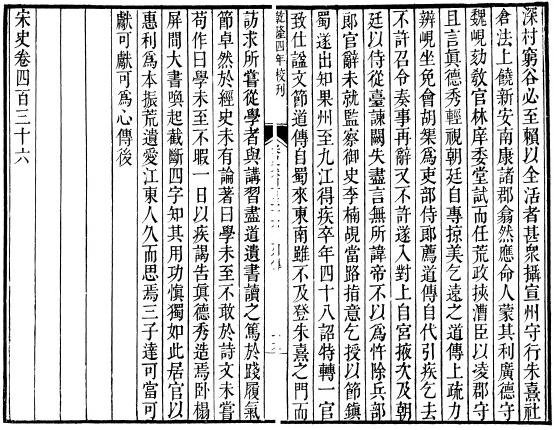 深村窮谷必至賴以全活者甚衆攝宣州守行朱熹社
倉法上饒新安南康諸郡翕然應命人蒙其利廣德守
魏峴劾敎官林庠委堂試而任荒政挾漕臣以凌郡守
且言眞德秀輕視朝廷自專掠美乞遠之道傳上疏力
辨峴坐免會胡榘爲吏部侍郎薦道傳自代引疾乞去
不許召令奏事再辭又不許遂入對上自宮掖次及朝
廷以侍從臺諫闕失盡言無所諱帝不以爲忤除兵部
郎官辭未就監察御史李楠覘當路指意乞授以節鎮
蜀遂出知果州至九江得疾卒年四十八詔特轉一官
致仕諡文節道傳自蜀來東南雖不及登朱熹之門而
乾隆四年校刊
訪求所嘗從學者與講習盡道遺書讀之篤於踐履氣
節卓然於經史未有論著曰學未至不敢於詩文未嘗
苟作曰學未至不暇一日以疾謁告眞德秀造焉卧榻
屏間大書喚起截斷四字知其用功愼獨如此居官以
惠利爲本振荒遺愛江東人久而思焉三子達可當可
獻可獻可爲心傳後
宋史卷四百三十六